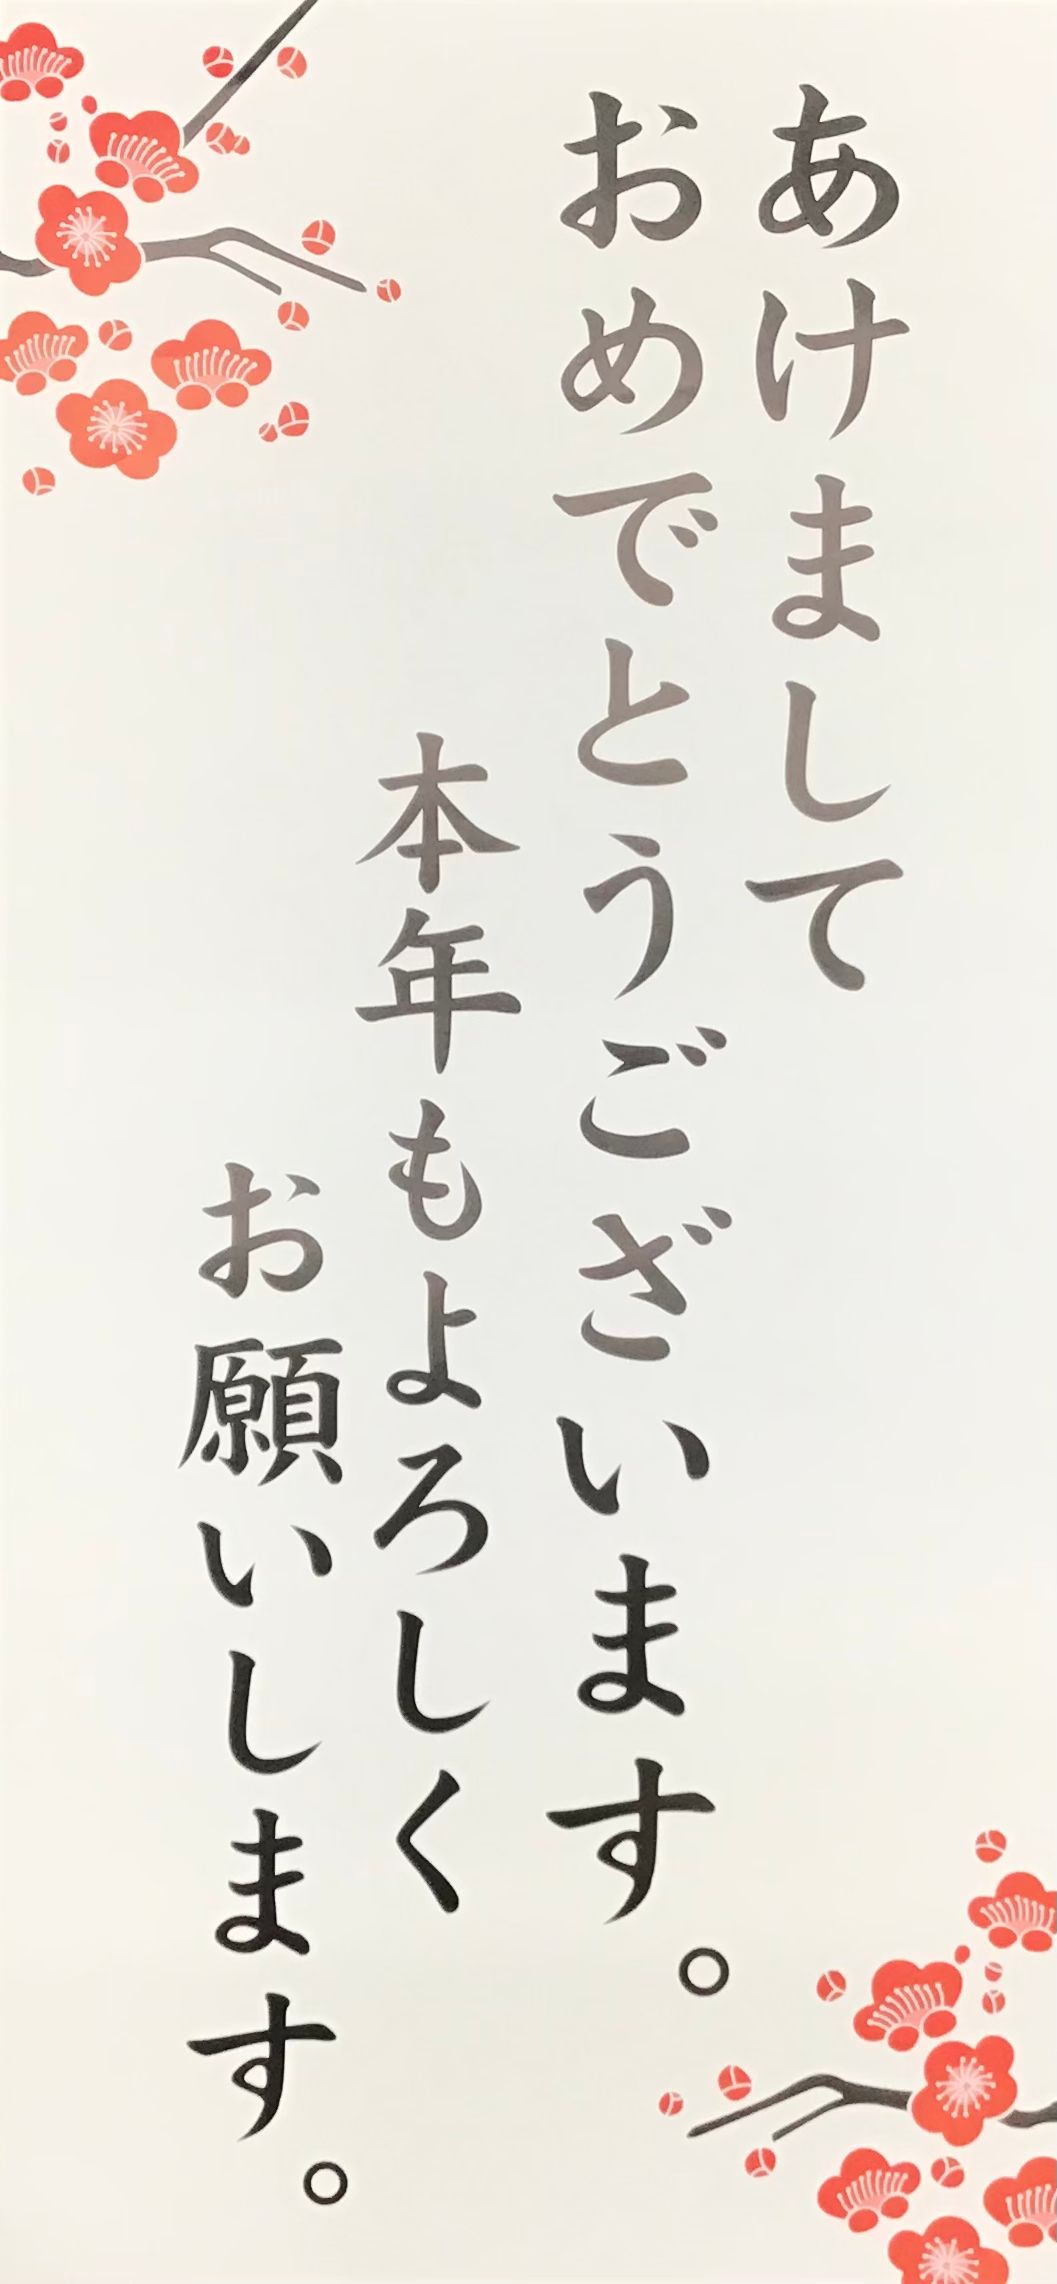 あけまして
おめでとうございます。
本年もよろしく
お願いします。